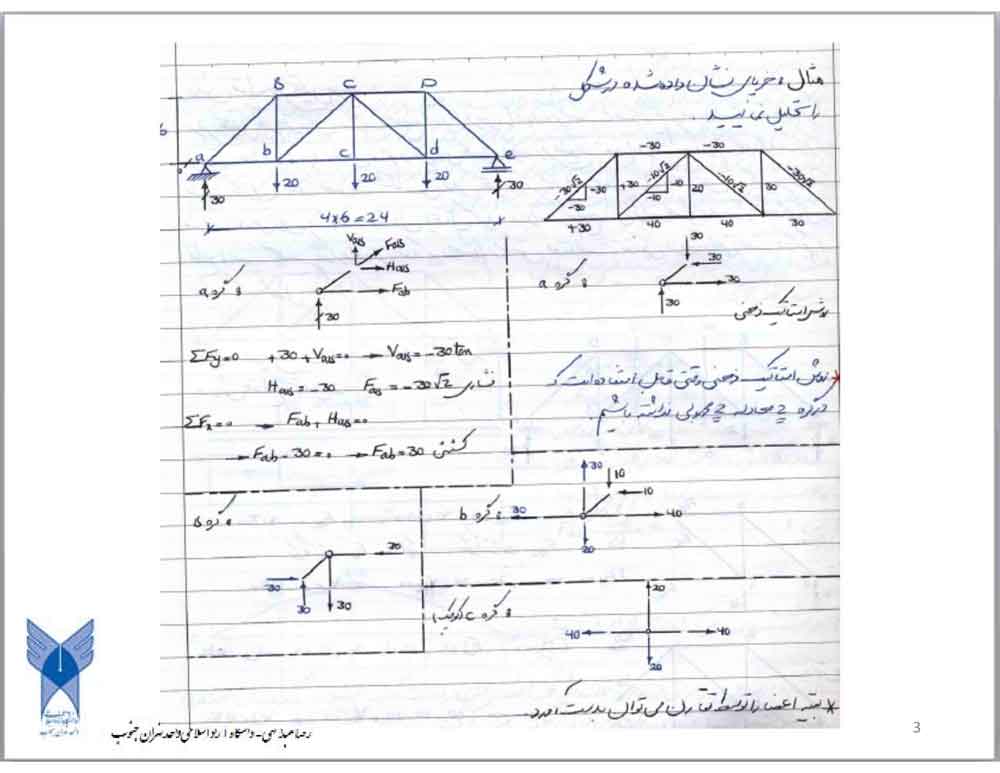 مثال: خرپای نشان داده شده در شکل
را تحلیل نمایید.
B C D
a b c d e
6
20 20 20
30 30
4*6=24
-30 -30
-30√2 -30 -30 +30 -10√2 -10 -10 20 -10√2 30 -30√2
+30 40 40 30
گره a:
Vab Fab
Hab
Fab
30
گره a:
30
30
30
30
روش استاتیک ذهنی
ΣFy=0 +30+Vab=0 → Vab=-30 ton
Hab=-30 Fab=-30√2 فشاری
ΣFx=0 → Fab+Hab=0
→ Fab-30=0 → Fab=30 کششی
* روش استاتیک ذهنی وقتی قابل استفاده است که
در گره 2 معادله 2 مجهولی نداشته باشیم.
گره b:
30 10
10
30 40
20
گره B:
30
30 30
گره c کوچک:
20
40 40
20
* بقیه اعضا را توسط تقارن می توان بدست آورد.
دانشگاه آزاد اسلامی واحد تهران جنوب
3